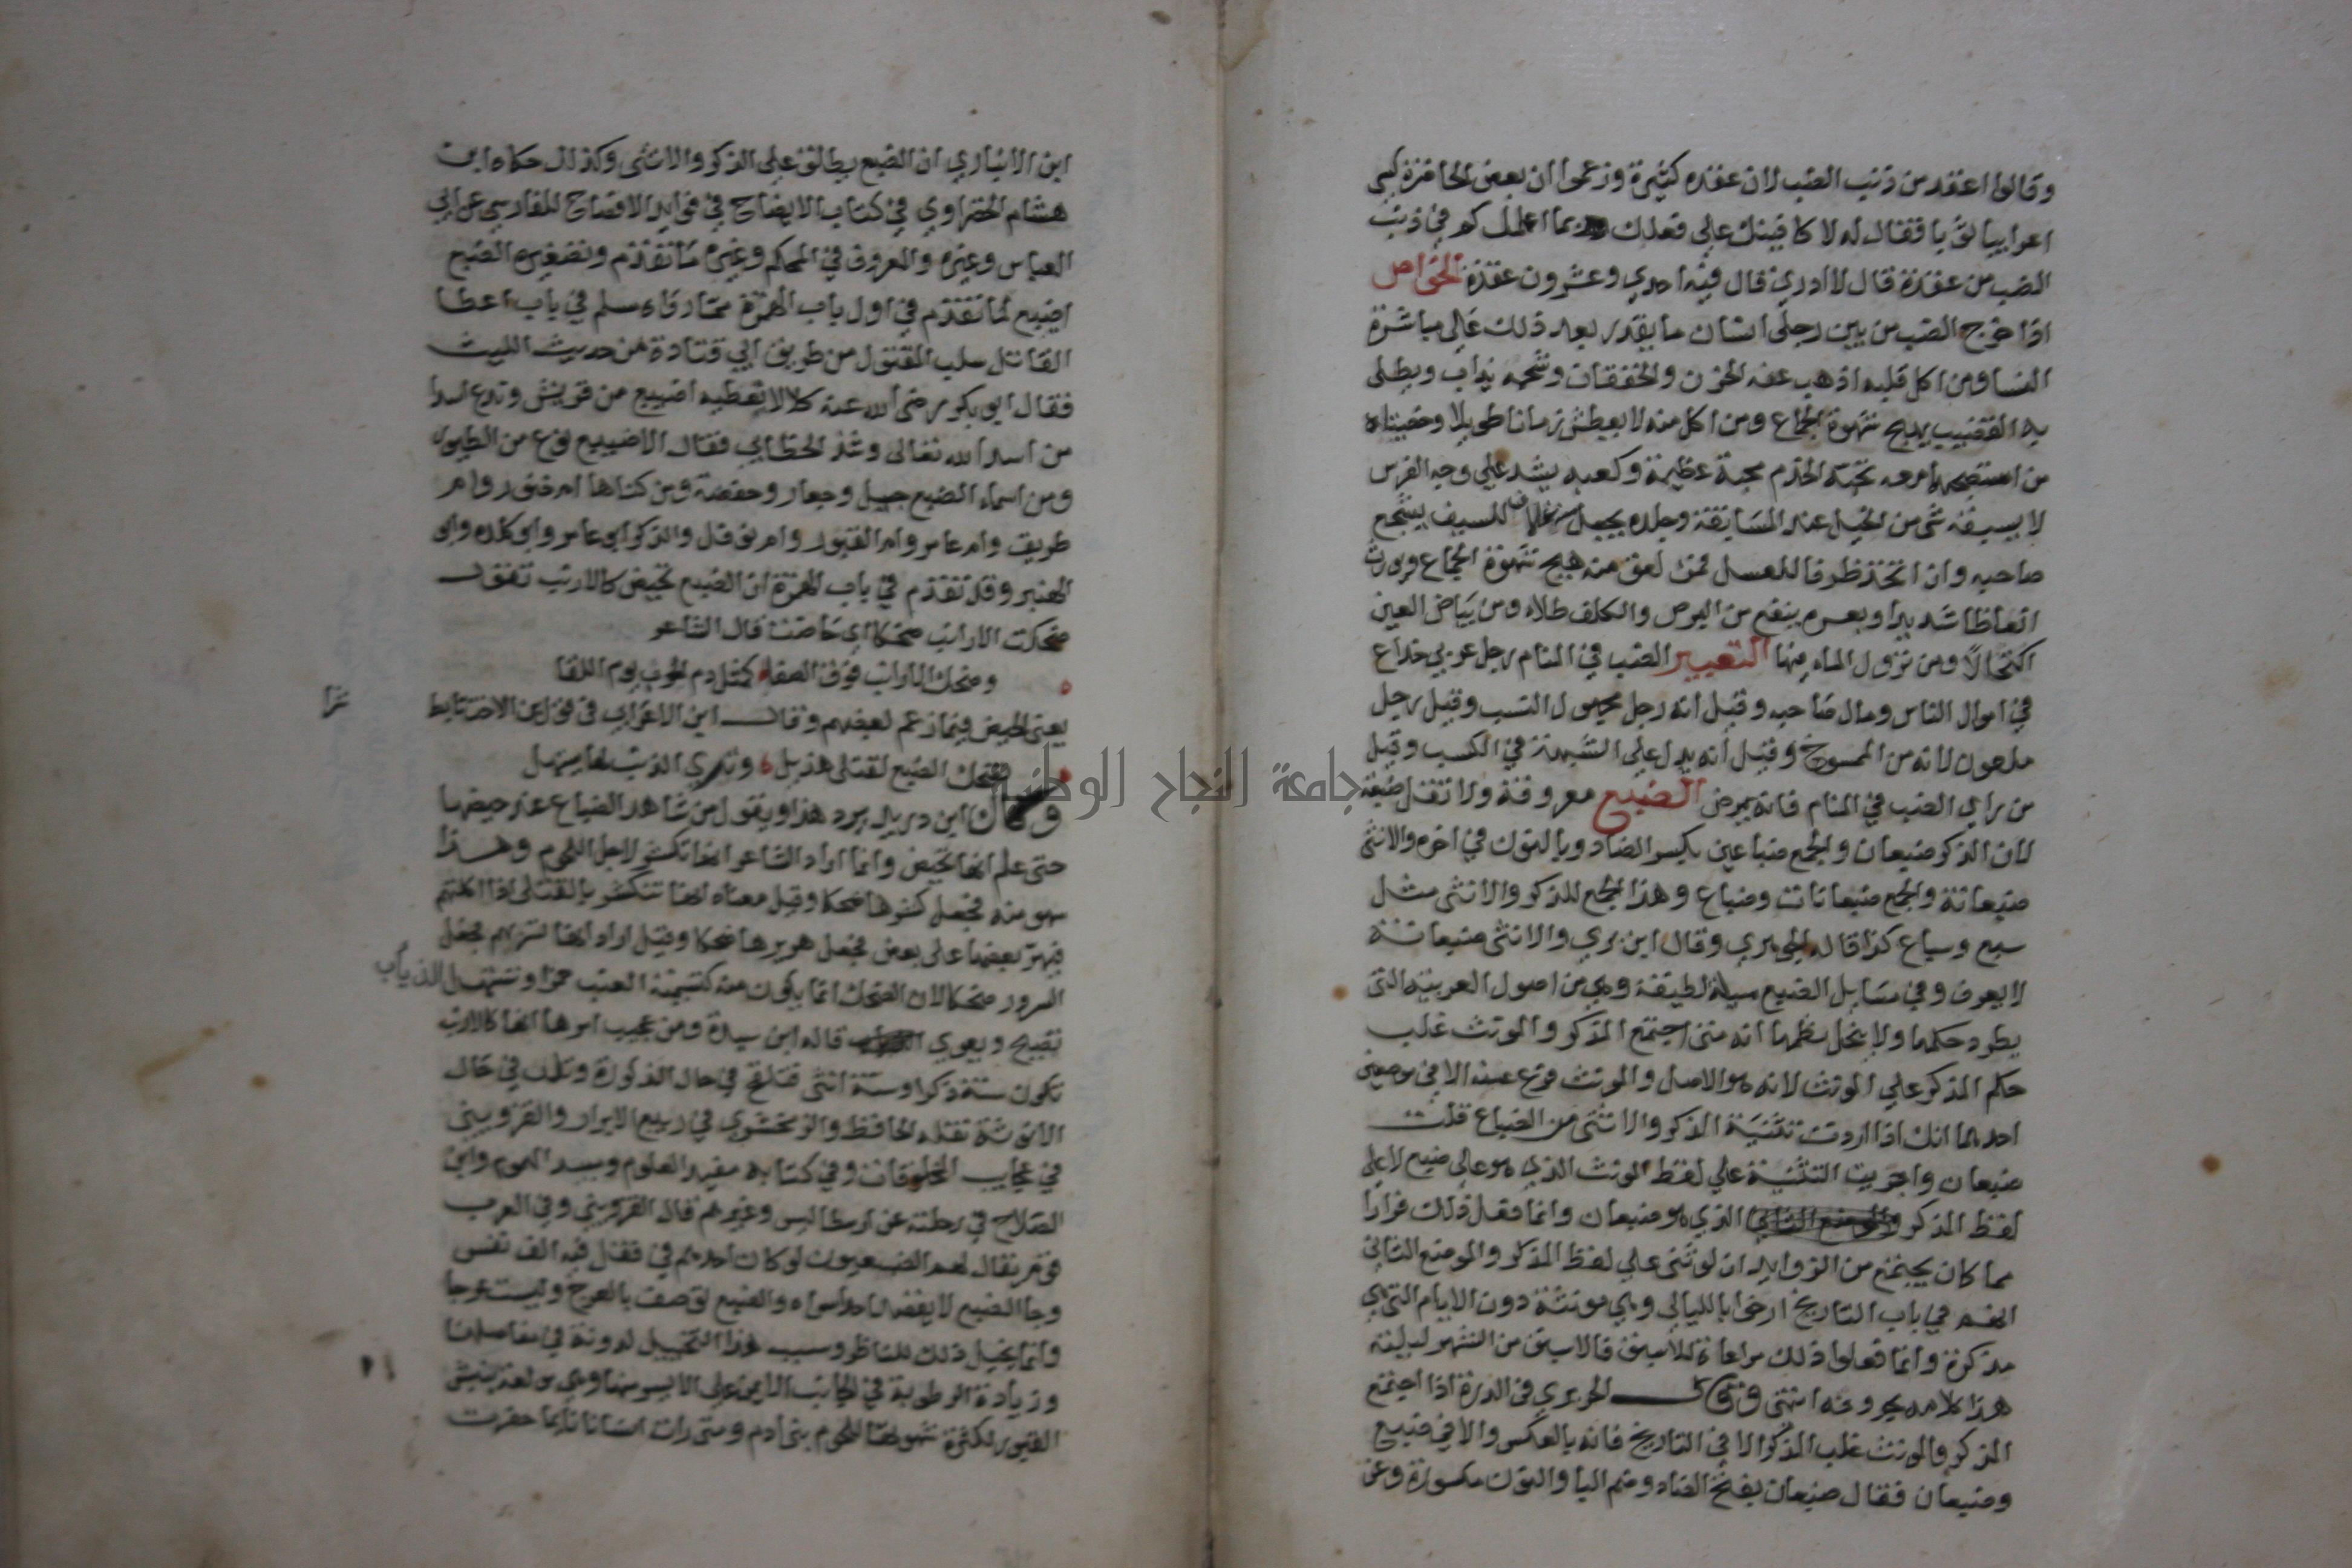 وقالوا اعقد من ذنب الضب لان عقده كثيرة وزعموا ان بعض الحاضرة كسي
اعرابيا ثوبا فقال له لاكافينك علي فعلك بما اعلمك كم في ذنب
الضب من عقدة قال لا ادري قال فيه احدي وعشرون عقدة الخواص
اذا خرج الضب من بين رجلي انسان ما يقدر بعد ذلك علي مباشرة
النسا ومن اكل قلبه اذهب عنه الحزن والخفقان وشحمه يذاب ويطلي
به القضيب يهيج شهوة الجماع ومن اكل منه لا يعطش زمانا طويلا وخصيتاه
من استصحبهما معه تحبه الخدم محبة عظيمة وكعبه يشد علي وجه الفرس
لا يسبقه شي من الخيل عند المسابقة وجلده يجعل للسيف يشجع
صاحبه وان اتخذ ظرفا للعسل فمن لعق منه هيج شهوة الجماع ويورث
انعاظا شديدا وبعره ينفع من البرص والكلف طلاء ومن بياض العين
اكتحالا ومن نزول الماء فيها التعبير الضب في المنام رجل عربي خداع
في اموال الناس ومال صاحبه وقيل انه رجل مجهول النسب وقيل رجل
ملعون لانه من الممسوخ وقيل انه يدل علي الشبهة في الكسب وقيل
من راي الضب في المنام فانه يمرض الضبع معروفة ولا تقل ضبعة
لان الذكر ضبعان والجمع ضباعين بكسر الضاد وبالنون في اخره والانثي
ضبعانة والجمع ضبعانات وضباع وهذا الجمع للذكر والانثي مثل
سبع وسباع كذا قاله الجوهري وقال ابن بري والانثي ضبعانة
لا يعرف وفي مسايل الضبع مسيلة لطيفة وهي من اصول العربية التي
يطرد حكمها ولا ينحل نظمها انه متي اجتمع المذكر والمونث غلب
حكم المذكر علي المونث لانه هو الاصل والمونث فرع عنه الا في موضعين
احدهما انك اذا اردت تثنية الذكر والانثي من الضباع قلت
ضبعان واجريت التثنية علي لفظ المونث الذي هو علي ضبع لا علي
لفظ المذكر الذي هو ضبعان وانما فعل ذلك فرارا
مما كان يجتمع من الزوايد ان لو ثني علي لفظ المذكر والموضع الثاني
انهم في باب التاريخ ارخوا بالليالي وهي مونثة دون الايام التي هي
مذكرة وانما فعلوا ذلك مراعاة للاسبق فالاسبق من الشهر ليلته
هذا كلامه بحروفه انتهي وقال الحريري في الدرة اذا اجتمع
المذكر والمونث غلب المذكر الا في التاريخ فانه بالعكس والا في ضبع
وضبعان فقال ضبعان بفتح الضاد وضم اليا والنون مكسورة وعن
ابن الانباري ان الضبع يطلق علي الذكر والانثي وكذلك حكاه ابن
هشام الخضراوي في كتاب الايضاح في فوايد الافصاح للفارسي عن ابي
العباس وغيره والمعروف في المحكم وغيره ما تقدم وتصغيره الضبع
اضبع لما تقدم في اول باب الهمزة مما رواه مسلم في باب اعطا
القاتل سلب المقتول من طريق ابي قتادة من حديث الليث
فقال ابو بكر رضي الله عنه كلا لا يعطيه اضيبع من قريش وتدع اسدا
من اسد الله تعالي وشذ الخطابي فقال الاضيبع نوع من الطيور
ومن اسماء الضبع جيل وجعار وحفصة ومن كناها ام خنور وام
طريق وام عامر وام القبور وام نوفل والذكر ابو عامر وابو كلده وابو
الهنبر وقد تقدم في باب الهمزة ان الضبع تحيض كالارنب تقول
ضحكت الارانب ضحكا اي حاضت قال الشاعر
وضحك الارانب فوق الصفا كمثل دم الجوف يوم اللقا
يعني الحيض فيما زعم بعضهم وقال ابن الاعرابي في قول ابن الاخت تابط
شرا
تضحك الضبع لقتلي هذيل وتري الذيب لها يستهل
وكان ابن دريد يرد هذا ويقول من شاهد الضباع عند حيضها
حتي علم انها تحيض وانما اراد الشاعر انها تكشر لاجل اللحوم وهذا
سهو منه فجعل كشرها ضحكا وقيل معناه انها تستكشر بالقتلي اذا اكلتهم
فيهر بعضها علي بعض فجعل هريرها ضحكا وقيل اراد انها تسر بهم فجعل
السرور ضحكا لان الضحك انما يكون منه كتسمية العنب خمرا وتستهل الذياب
تصيح وتعوي قاله ابن سيدة ومن عجيب امرها انها كالارنب
تكون سنة ذكرا وسنة انثي فتلقح في حال الذكورة وتلد في حال
الانوثة نقله الجاحظ والزمخشري في ربيع الابرار والقزويني
في عجايب المخلوقات وفي كتابه مفيد العلوم ومبيد الهموم وابن
الصلاح في رحلته عن ارسطاليس وغيرهم قال القزويني وفي العرب
قوم يقال لهم الضبعيون لو كان احدهم في قفل فيه الف نفس
وجا الضبع لا يقصد احدا سواه والضبع توصف بالعرج وليست عرجا
وانما يخيل ذلك للناظر وسبب هذا التخييل لدونة في مفاصلها
وزيادة الرطوبة في الجانب الايمن علي الايسر منها وهي مولعة بنبش
القبور لكثرة شهوتها للحوم بني ادم ومتي رات انسانا نايما حفرت
جامعة النجاح الوطنية